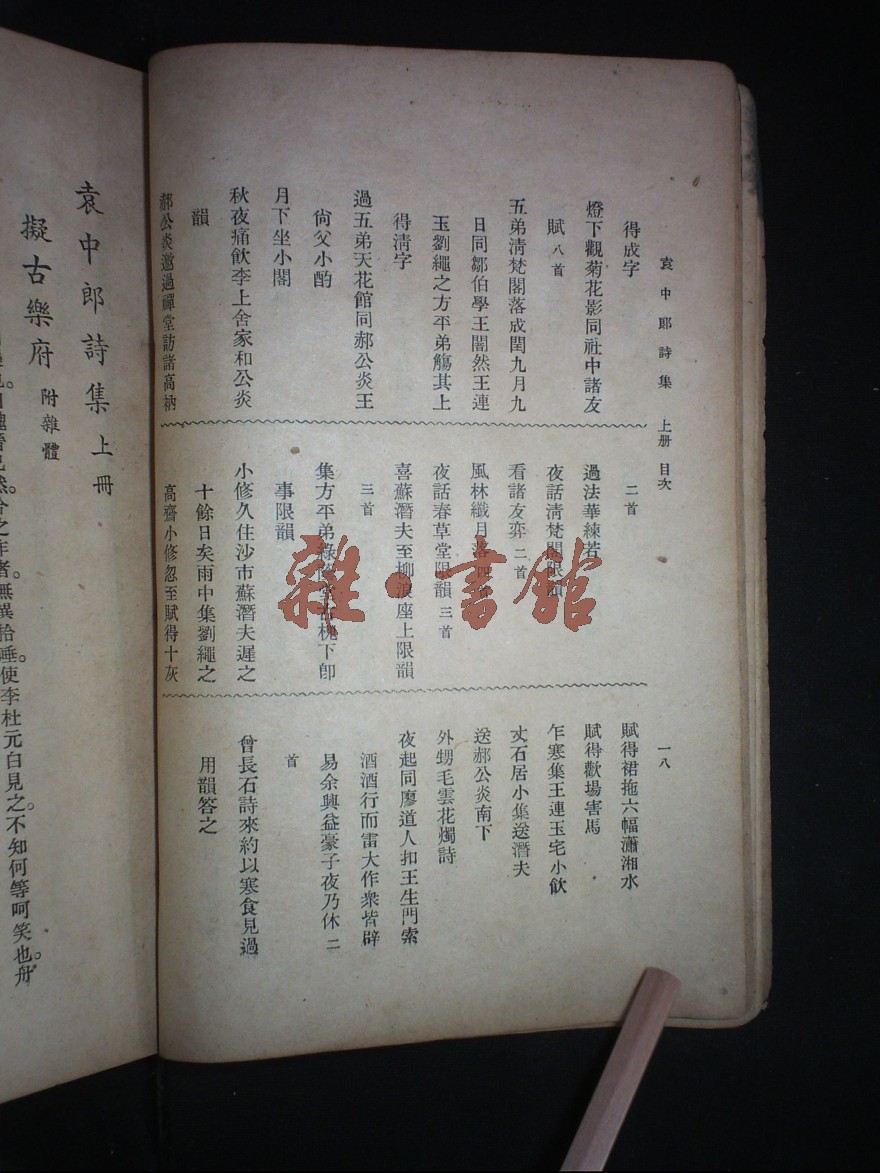 袁中郎詩集　上册　目次
一八
得成字
燈下觀菊花影同社中諸友
賦 八首
五弟淸梵閣落成閏九月九
日同鄒伯學王闇然王連
玉劉繩之方平弟觴其上
得淸字
過五弟天花館同郝公炎王
尙父小酌
月下坐小閣
秋夜痛飮李上舍家和公炎
韻
郝公炎邀過禪堂訪諸高衲
二首
過法華練若
夜話淸梵閣限韻
看諸友弈 二首
風林纖月落 四首
夜話春草堂限韻 三首
喜蘇潛夫至柳浪座上限韻
三首
集方平弟綠 下卽
事限韻
小修久住沙市蘇潛夫遲之
十餘日矣雨中集劉繩之
高齋小修忽至賦得十灰
賦得裙拖六幅瀟湘水
賦得歡場害馬
乍寒集王連玉宅小飮
丈石居小集送潛夫
送郝公炎南下
外甥毛雲花燭詩
夜起同廖道人扣王生門索
酒酒行而雷大作衆皆辟
易余興益豪子夜乃休 二
首
曾長石詩來約以寒食見過
用韻答之
袁中郎詩集 上冊
擬古樂府 附雜體
然今之作者。無異拾唾。使李杜元白見之。不知何等呵笑也。舟
雜·書館